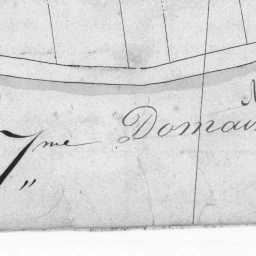 7me Domai